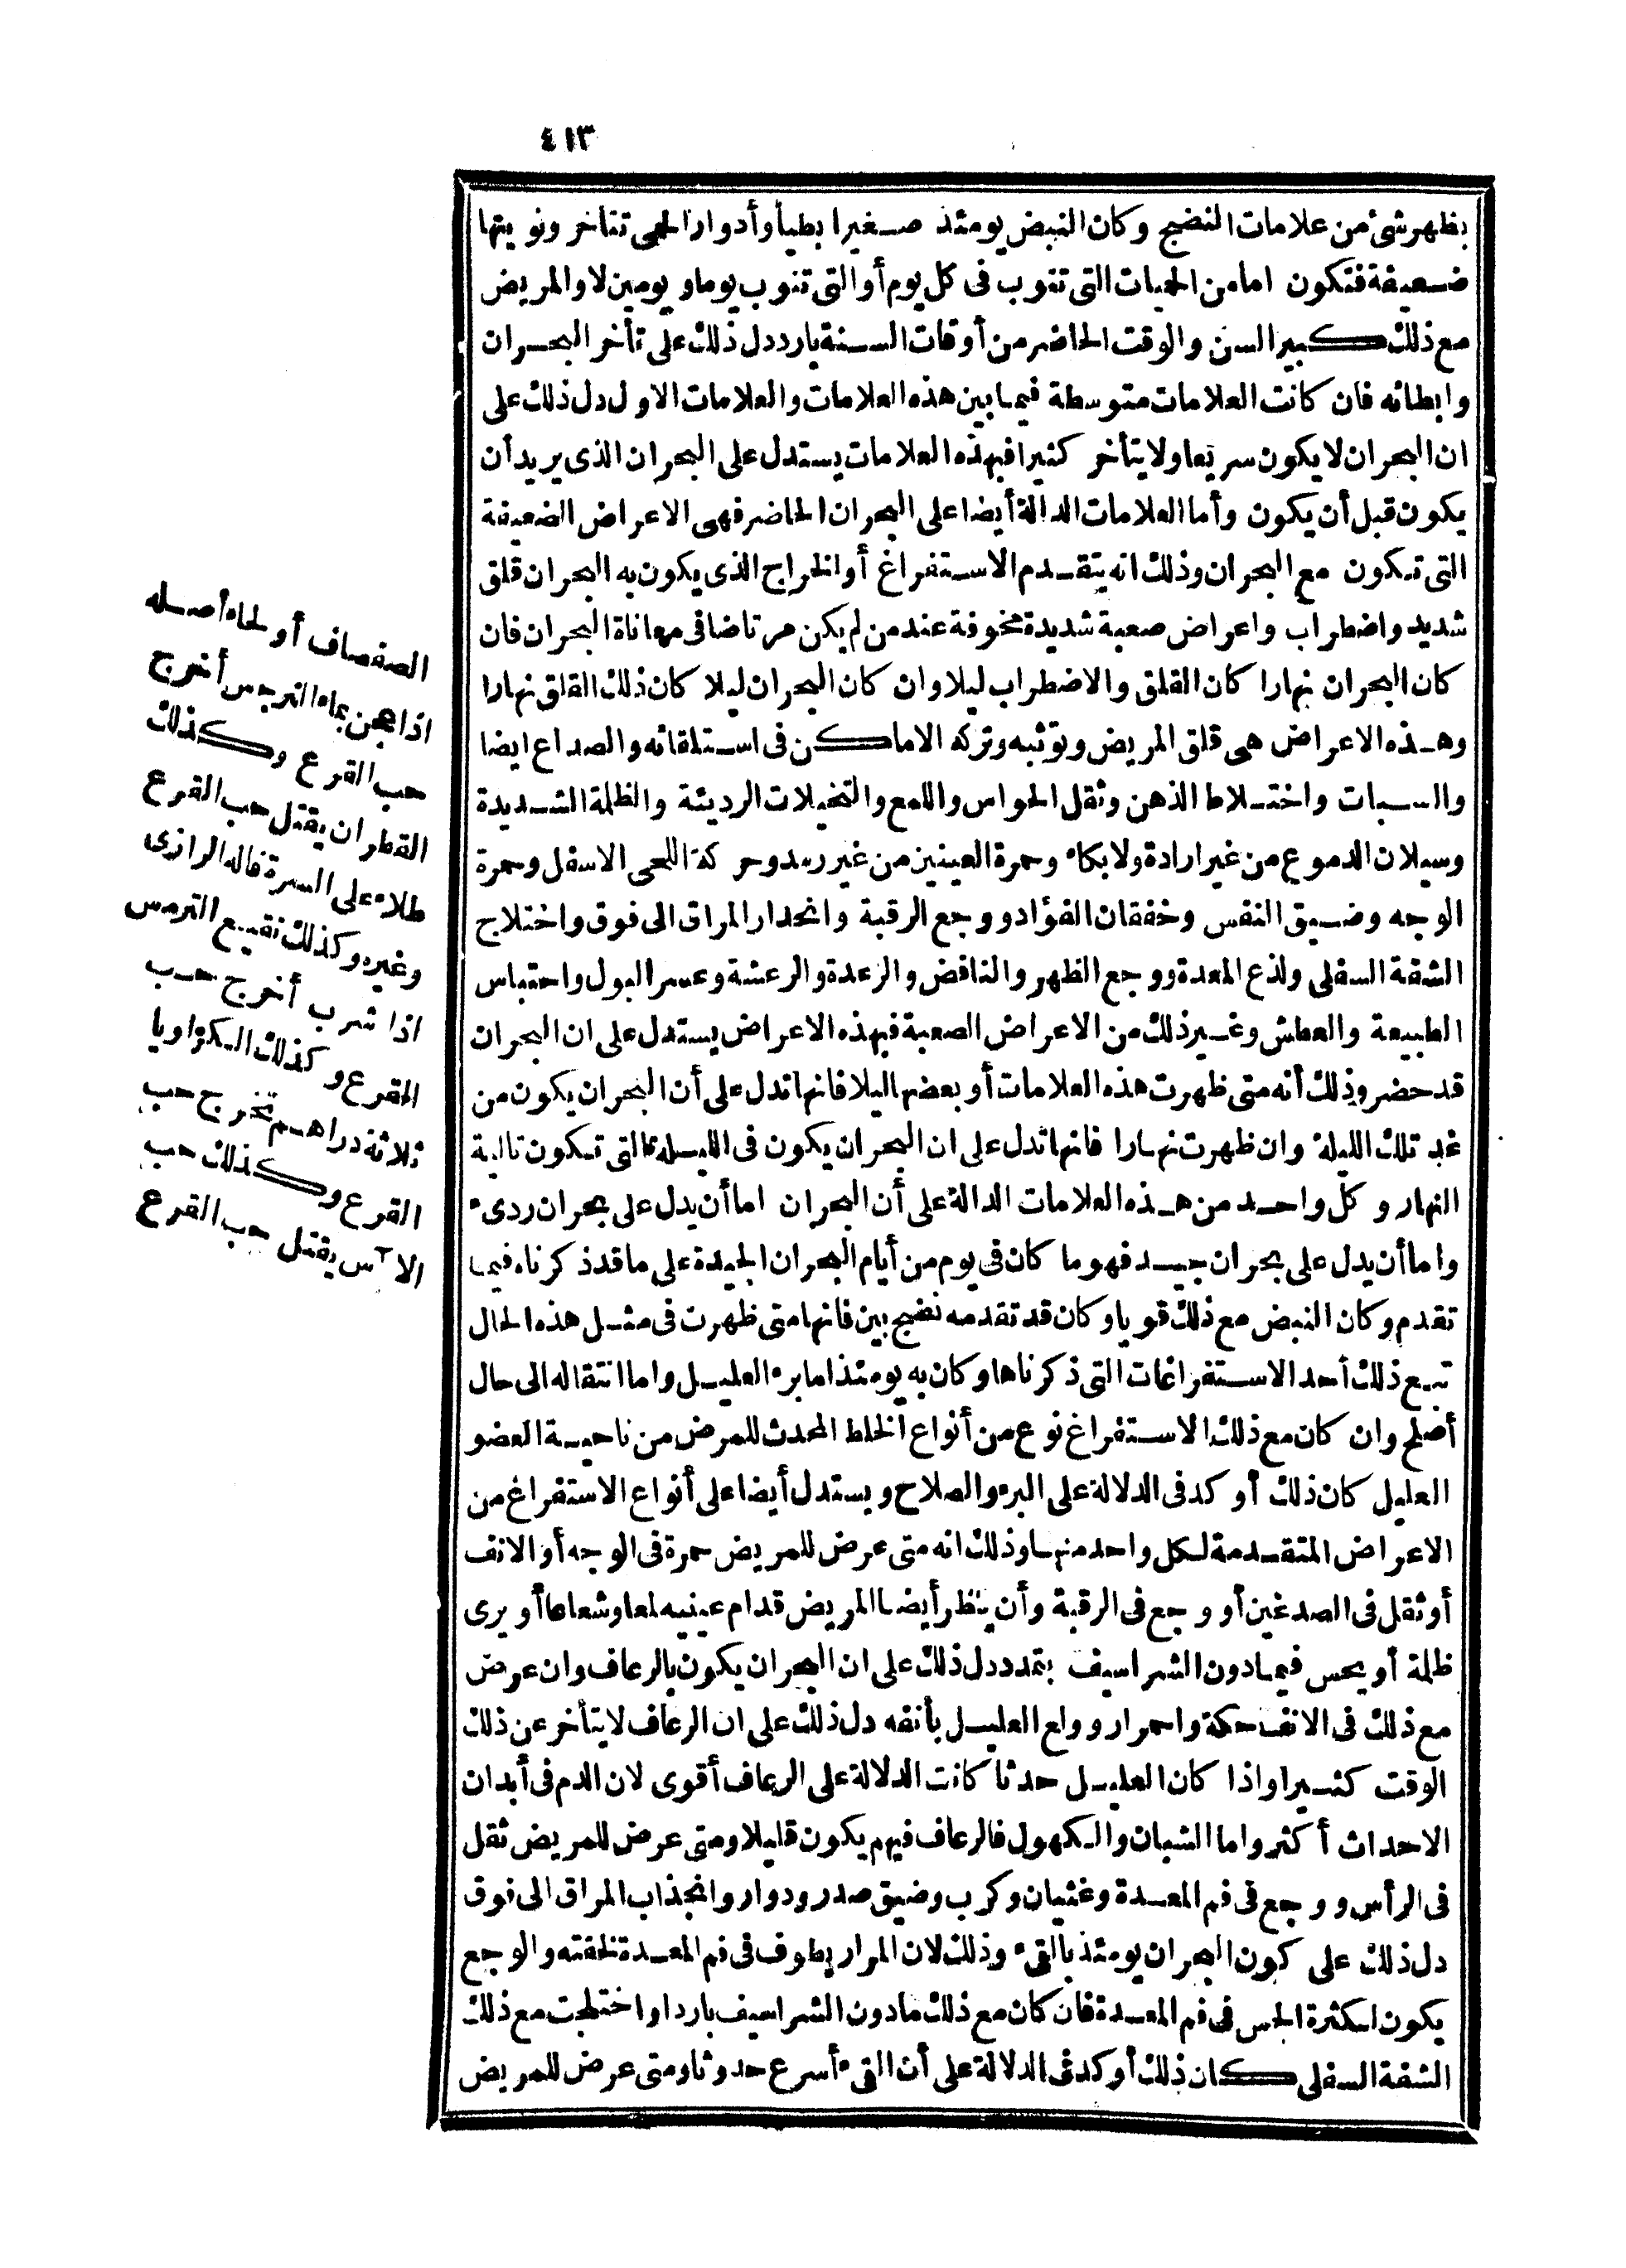 ٤١٣
يظهر شئ من علامات النضج وكان النبض يومئذ صغيرا بطيأ وأدوار الحمى تتأخر ونوبتها
ضعيفة فتكون اما من الحميات التى تنوب فى كل يوم أو التى تنوب يوما ويومين لا والمريض
مع ذلك كبير السن والوقت الحاضر من أوقات السنة بارد دل ذلك على تأخر البحران
وابطائه فان كانت العلامات متوسطة فيما بين هذه العلامات والعلامات الاول دل ذلك على
ان البحران لا يكون سريعا ولا يتأخر كثيرا فبهذه العلامات يستدل على البحران الذى يريد أن
يكون قبل أن يكون وأما العلامات الدالة أيضا على البحران الحاضر فهى الاعراض الضعيفة
التى تكون مع البحران وذلك انه يتقدم الاستفراغ أو الخراج الذى يكون به البحران قلق
شديد واضطراب واعراض صعبة شديدة مخوفة عند من لم يكن مرتاضا فى معاناة البحران فان
كان البحران نهارا كان القلق والاضطراب ليلا وان كان البحران ليلا كان ذلك القلق نهارا
وهذه الاعراض هى قلق المريض وتوثبه وتركه الاماكن فى استلقائه والصداع ايضا
والسبات واختلاط الذهن وثقل الحواس واللمع والتخيلات الرديئة والظلمة الشديدة
وسيلان الدموع من غير ارادة ولا بكاء وحمرة العينين من غير رمد وحركة اللحى الاسفل وحمرة
الوجه وضيق النفس وخفقان الفؤاد ووجع الرقبة وانحدار المراق الى فوق واختلاج
الشفة السفلى ولذع المعدة ووجع الظهر والنافض والرعدة والرعشة وعسر البول واحتباس
الطبيعة والعطش وغير ذلك من الاعراض الصعبة فبهذه الاعراض يستدل على ان البحران
قد حضر وذلك أنه متى ظهرت هذه العلامات أو بعضها ليلا فانها تدل على أن البحران يكون من
غد تلك الليلة وان ظهرت نهارا فانها تدل على ان البحران يكون فى الليلة التى تكون تالية
النهار وكل واحد من هذه العلامات الدالة على أن البحران اما أن يدل على بحران ردىء
واما أن يدل على بحران جيد فهو ما كان فى يوم من أيام البحران الجيدة على ما قد ذكرناه فيما
تقدم وكان النبض مع ذلك قويا وكان قد تقدمه نضج بين فانها متى ظهرت فى مثل هذه الحال
تبع ذلك أحد الاستفراغات التى ذكرناها وكان به يومئذ اما برء العليل واما انتقاله الى حال
أصلح وان كان مع ذلك الاستفراغ نوع من أنواع الخلط المحدث للمرض من ناحية العضو
العليل كان ذلك أوكد فى الدلالة على البرء والصلاح ويستدل أيضا على أنواع الاستفراغ من
الاعراض المتقدمة لكل واحد منها وذلك انه متى عرض للمريض حمرة فى الوجه أو الانف
أو ثقل فى الصدغين أو وجع فى الرقبة وأن ينظر أيضا المريض قدام عينيه لمعا وشعاعا أو يرى
ظلمة أو يحس فيما دون الشراسيف بتمدد دل ذلك على ان البحران يكون بالرعاف وان عرض
مع ذلك فى الانف حكة واحمرار وولع العليل بأنفه دل ذلك على ان الرعاف لا يتأخر عن ذلك
الوقت كثيرا واذا كان العليل حدثا كانت الدلالة على الرعاف أقوى لان الدم فى أبدان
الاحداث أكثر واما الشبان والكهول فالرعاف فيهم يكون قليلا ومتى عرض للمريض ثقل
فى الرأس ووجع فى فم المعدة وغثيان وكرب وضيق صدر ودوار وانجذاب المراق الى فوق
دل ذلك على كون البحران يومئذ بالقىء وذلك لان المرار يطوف فى فم المعدة لخفته والوجع
يكون لكثرة الحس فى فم المعدة فان كان مع ذلك ما دون الشراسيف باردا واختلجت مع ذلك
الشفة السفلى كان ذلك أوكد فى الدلالة على أن القىء أسرع حدوثا ومتى عرض للمريض
الصفصاف أو لحاء أصله
اذا عجن بماء النرجس أخرج
حب القرع وكذلك
القطران يقتل حب القرع
طلاء على السرة قاله الرازى
وغيره وكذلك نقيع الترمس
اذا شرب أخرج حب
القرع وكذلك الكراويا
ثلاثة دراهم تخرج حب
القرع وكذلك حب
الآس يقتل حب القرع